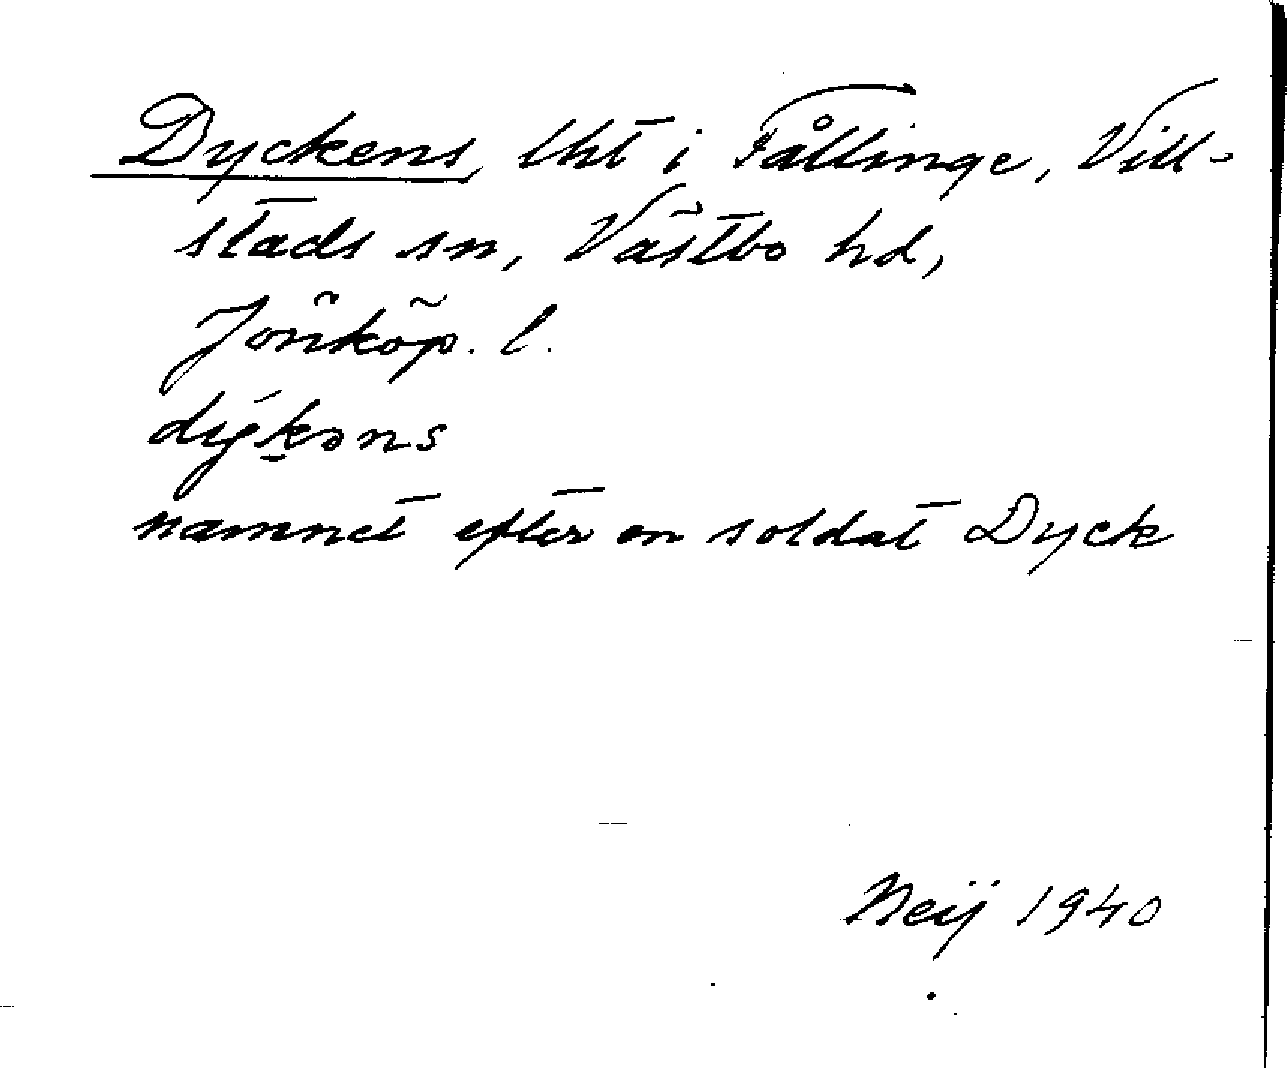 Dyckens, lht i Fållinge, Vill-
stads sn, Västbo hd,
Jönköp. l.
dýkəns
namnet efter en soldat Dyck
Neij 1940